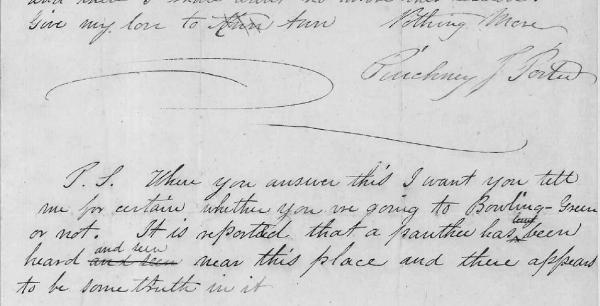 Give my love to Ann Ann Nothing More
Pinckney J Porter
P. S. When you answer this I want you tell
me for certain whether you are going to Bowling-Green
or not. It is reported that a panther has been
heard and been near this place and there appears
to be some truth in it